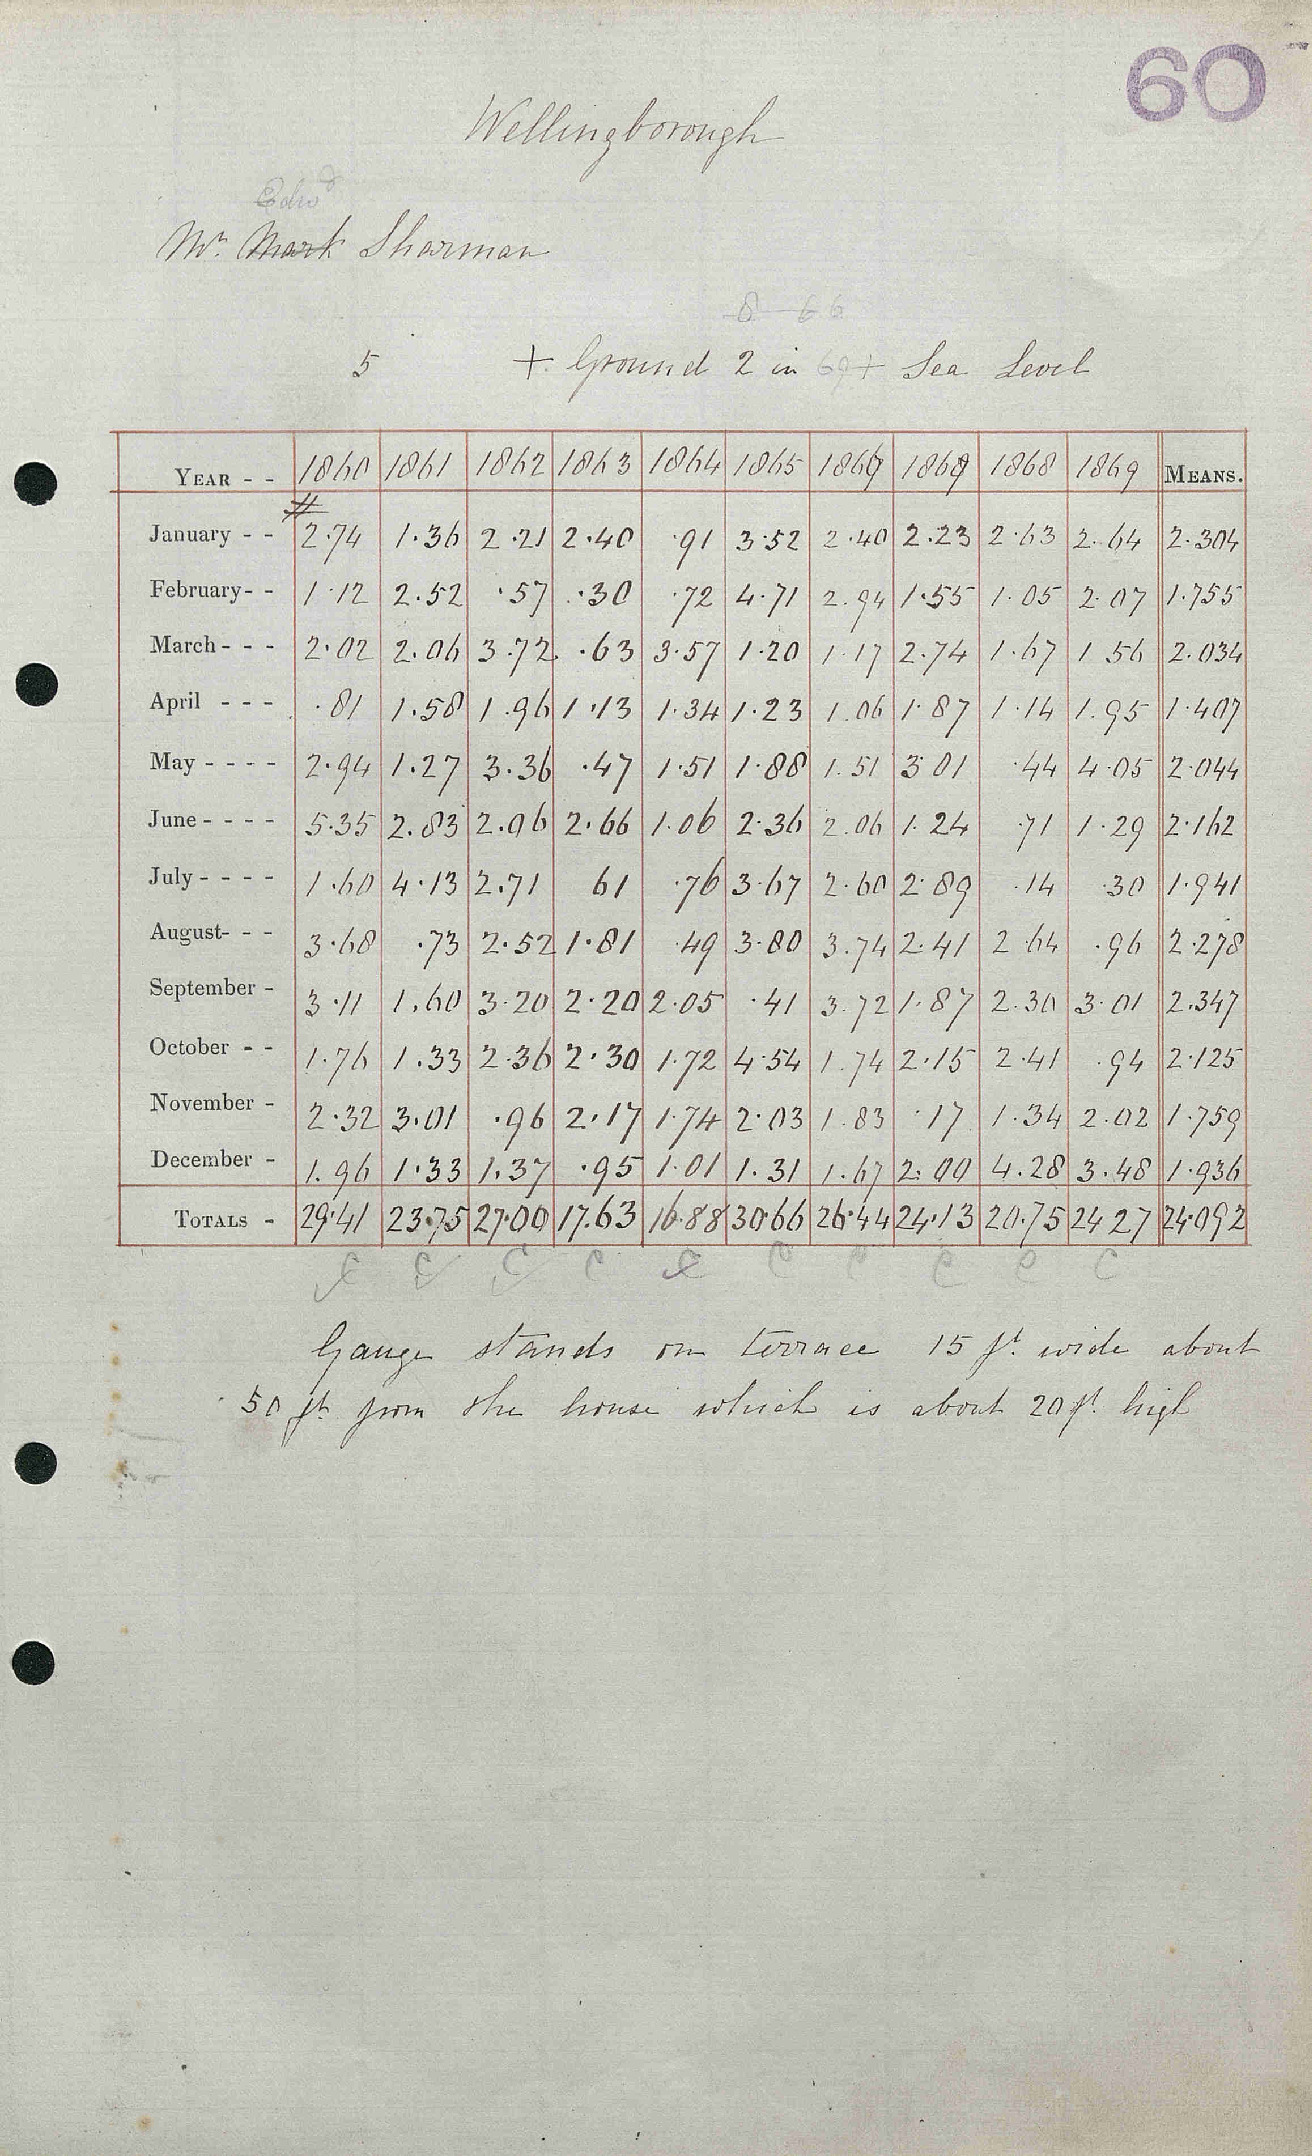 60
Wellingborough
Edwd
Mr. Mark Sharman
8 66
5 + Ground 2 in 69 + Sea Level
YEAR - - 1860 1861 1862 1863 1864 1865 1866 1867 1868 1869 MEANS.
January - - 2.74 1.36 2.21 2.40 .91 3.52 2.40 2.23 2.63 2.64 2.304
February - - 1.12 2.52 .57 .30 .72 4.71 2.94 1.55 1.05 2.07 1.755
March - - - 2.02 2.06 3.72 .63 3.57 1.20 1.17 2.74 1.67 1.56 2.034
April - - - .81 1.58 1.96 1.13 1.34 1.23 1.06 1.87 1.14 1.95 1.407
May - - - - 2.94 1.27 3.36 .47 1.51 1.88 1.51 3.01 .44 4.05 2.044
June - - - - 5.35 2.83 2.06 2.66 1.06 2.36 2.06 1.24 .71 1.29 2.162
July - - - - 1.60 4.13 2.71 61 .76 3.67 2.60 2.89 .14 .30 1.941
August - - - 3.68 .73 2.52 1.81 .49 3.80 3.74 2.41 2.64 .96 2.278
September - 3.11 1.60 3.20 2.20 2.05 .41 3.72 1.87 2.30 3.01 2.347
October - - 1.76 1.33 2.36 2.30 1.72 4.54 1.74 2.15 2.41 .94 2.125
November - 2.32 3.01 .96 2.17 1.74 2.03 1.83 .17 1.34 2.02 1.759
December - 1.96 1.33 1.37 .95 1.01 1.31 1.67 2.00 4.28 3.48 1.936
TOTALS - 29.41 23.75 27.00 17.63 16.88 30.66 26.44 24.13 20.75 24.27 24.092
C C C C C C C C C C
Gauge stands on terrace 15 ft. wide about
50 ft from the house which is about 20 ft. high